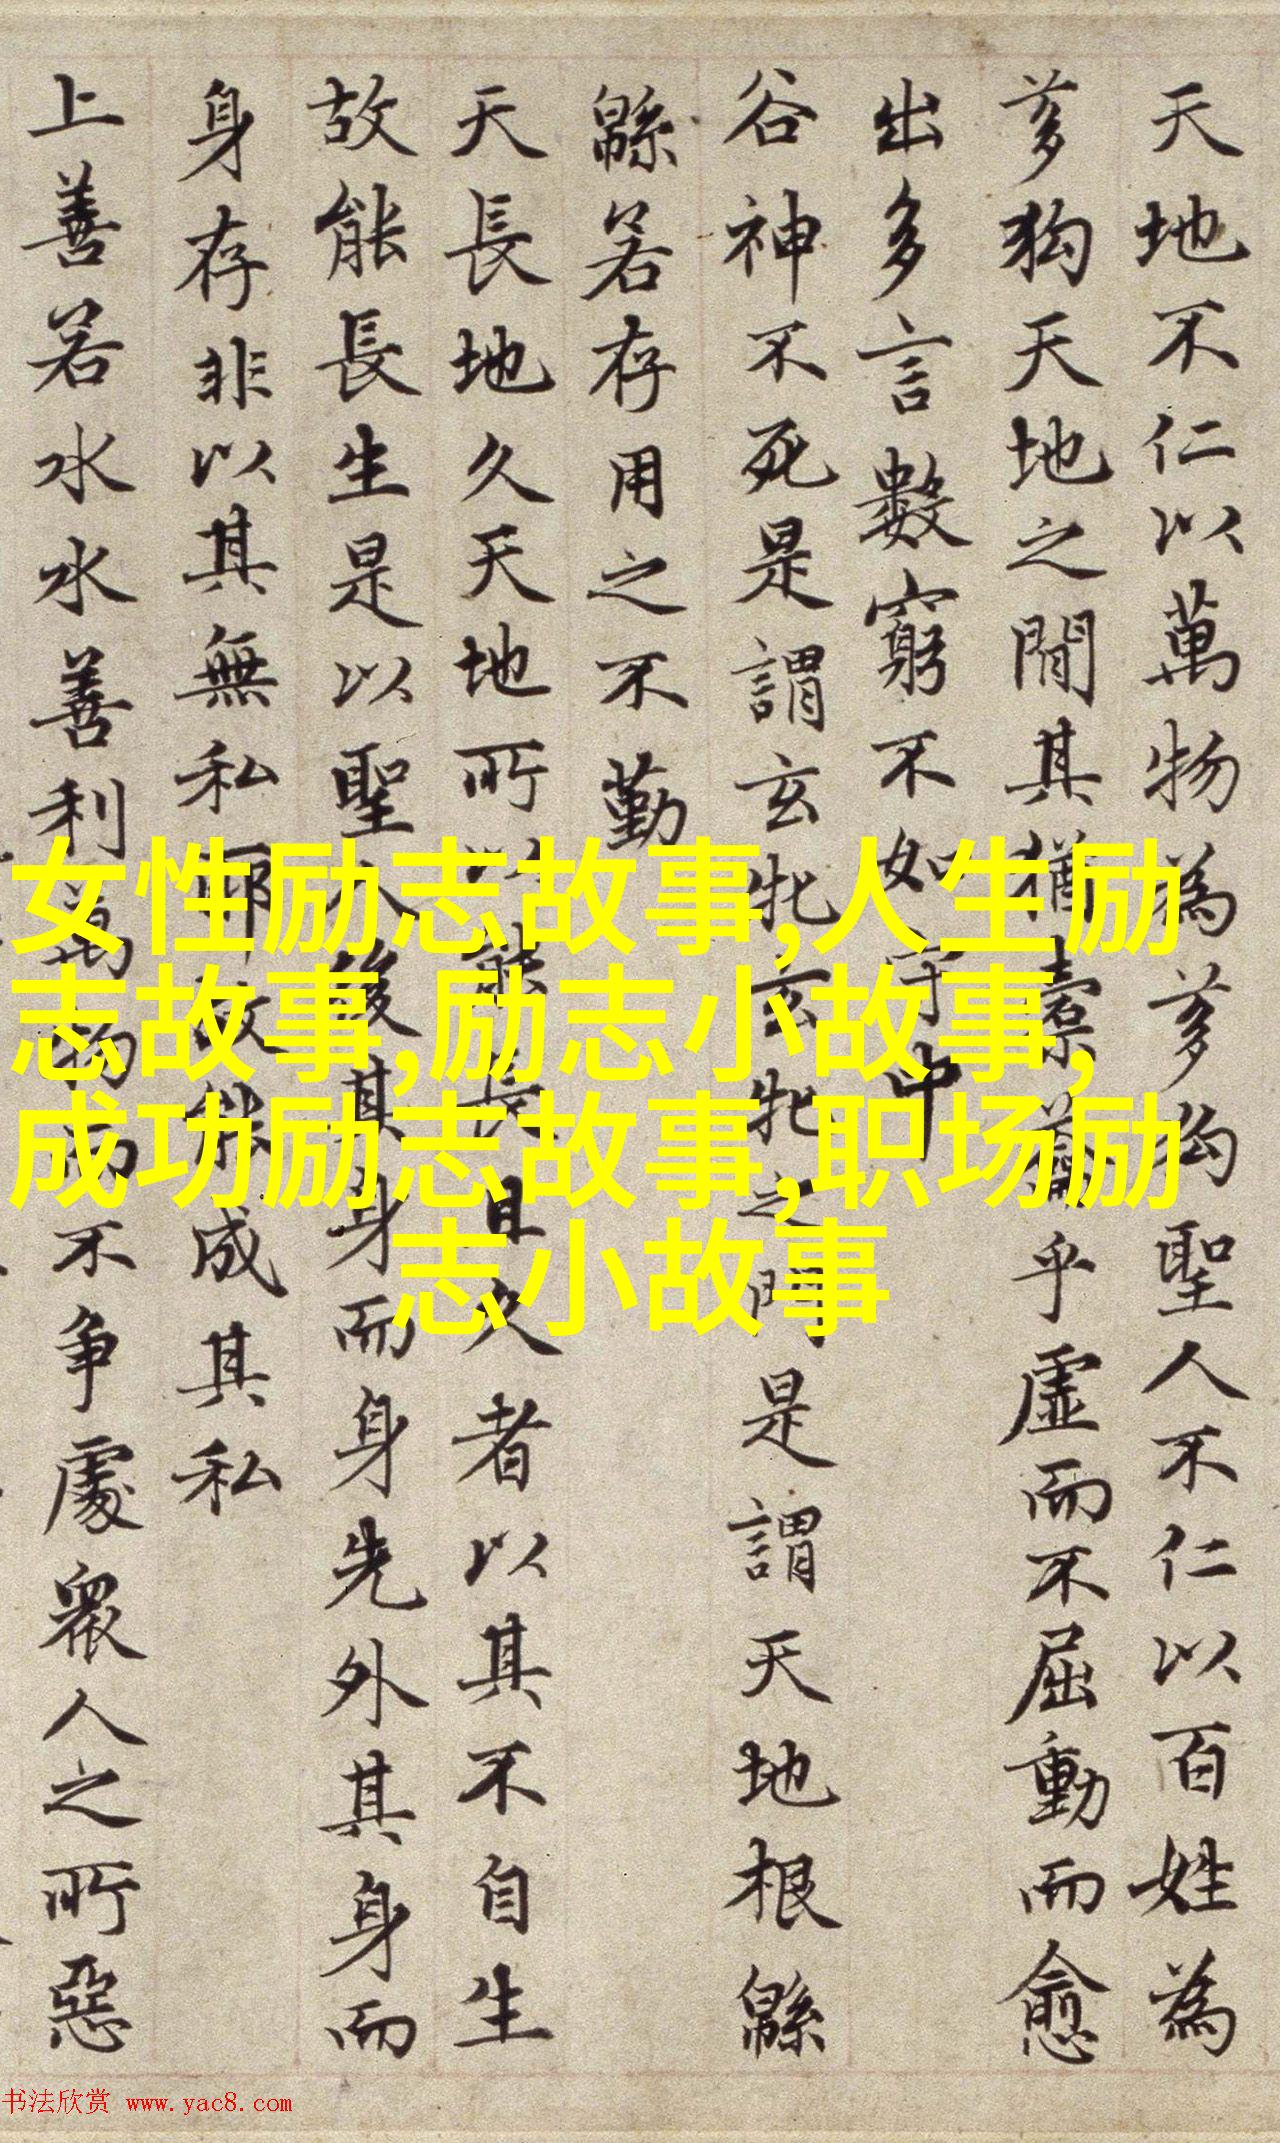 天地不仁以萬物為芻狗聖人不仁以百姓為
芻狗天地之間其猶橐籥乎虛而不屈動而愈
出多言數窮不如守中
谷神不死是謂玄牝玄牝之門是謂天地根緜
緜若存用之不勤
天長地久天地所以能長且久者以其不自生
故能長生是以聖人後其身而身先外其身而
身存非以其無私邪故能成其私
上善若水水善利萬物而不争處衆人之所惡
女性励志故事,人生励
志故事,励志小故事,
成功励志故事,职场励
志小故事
书法欣赏 www.yac8.com